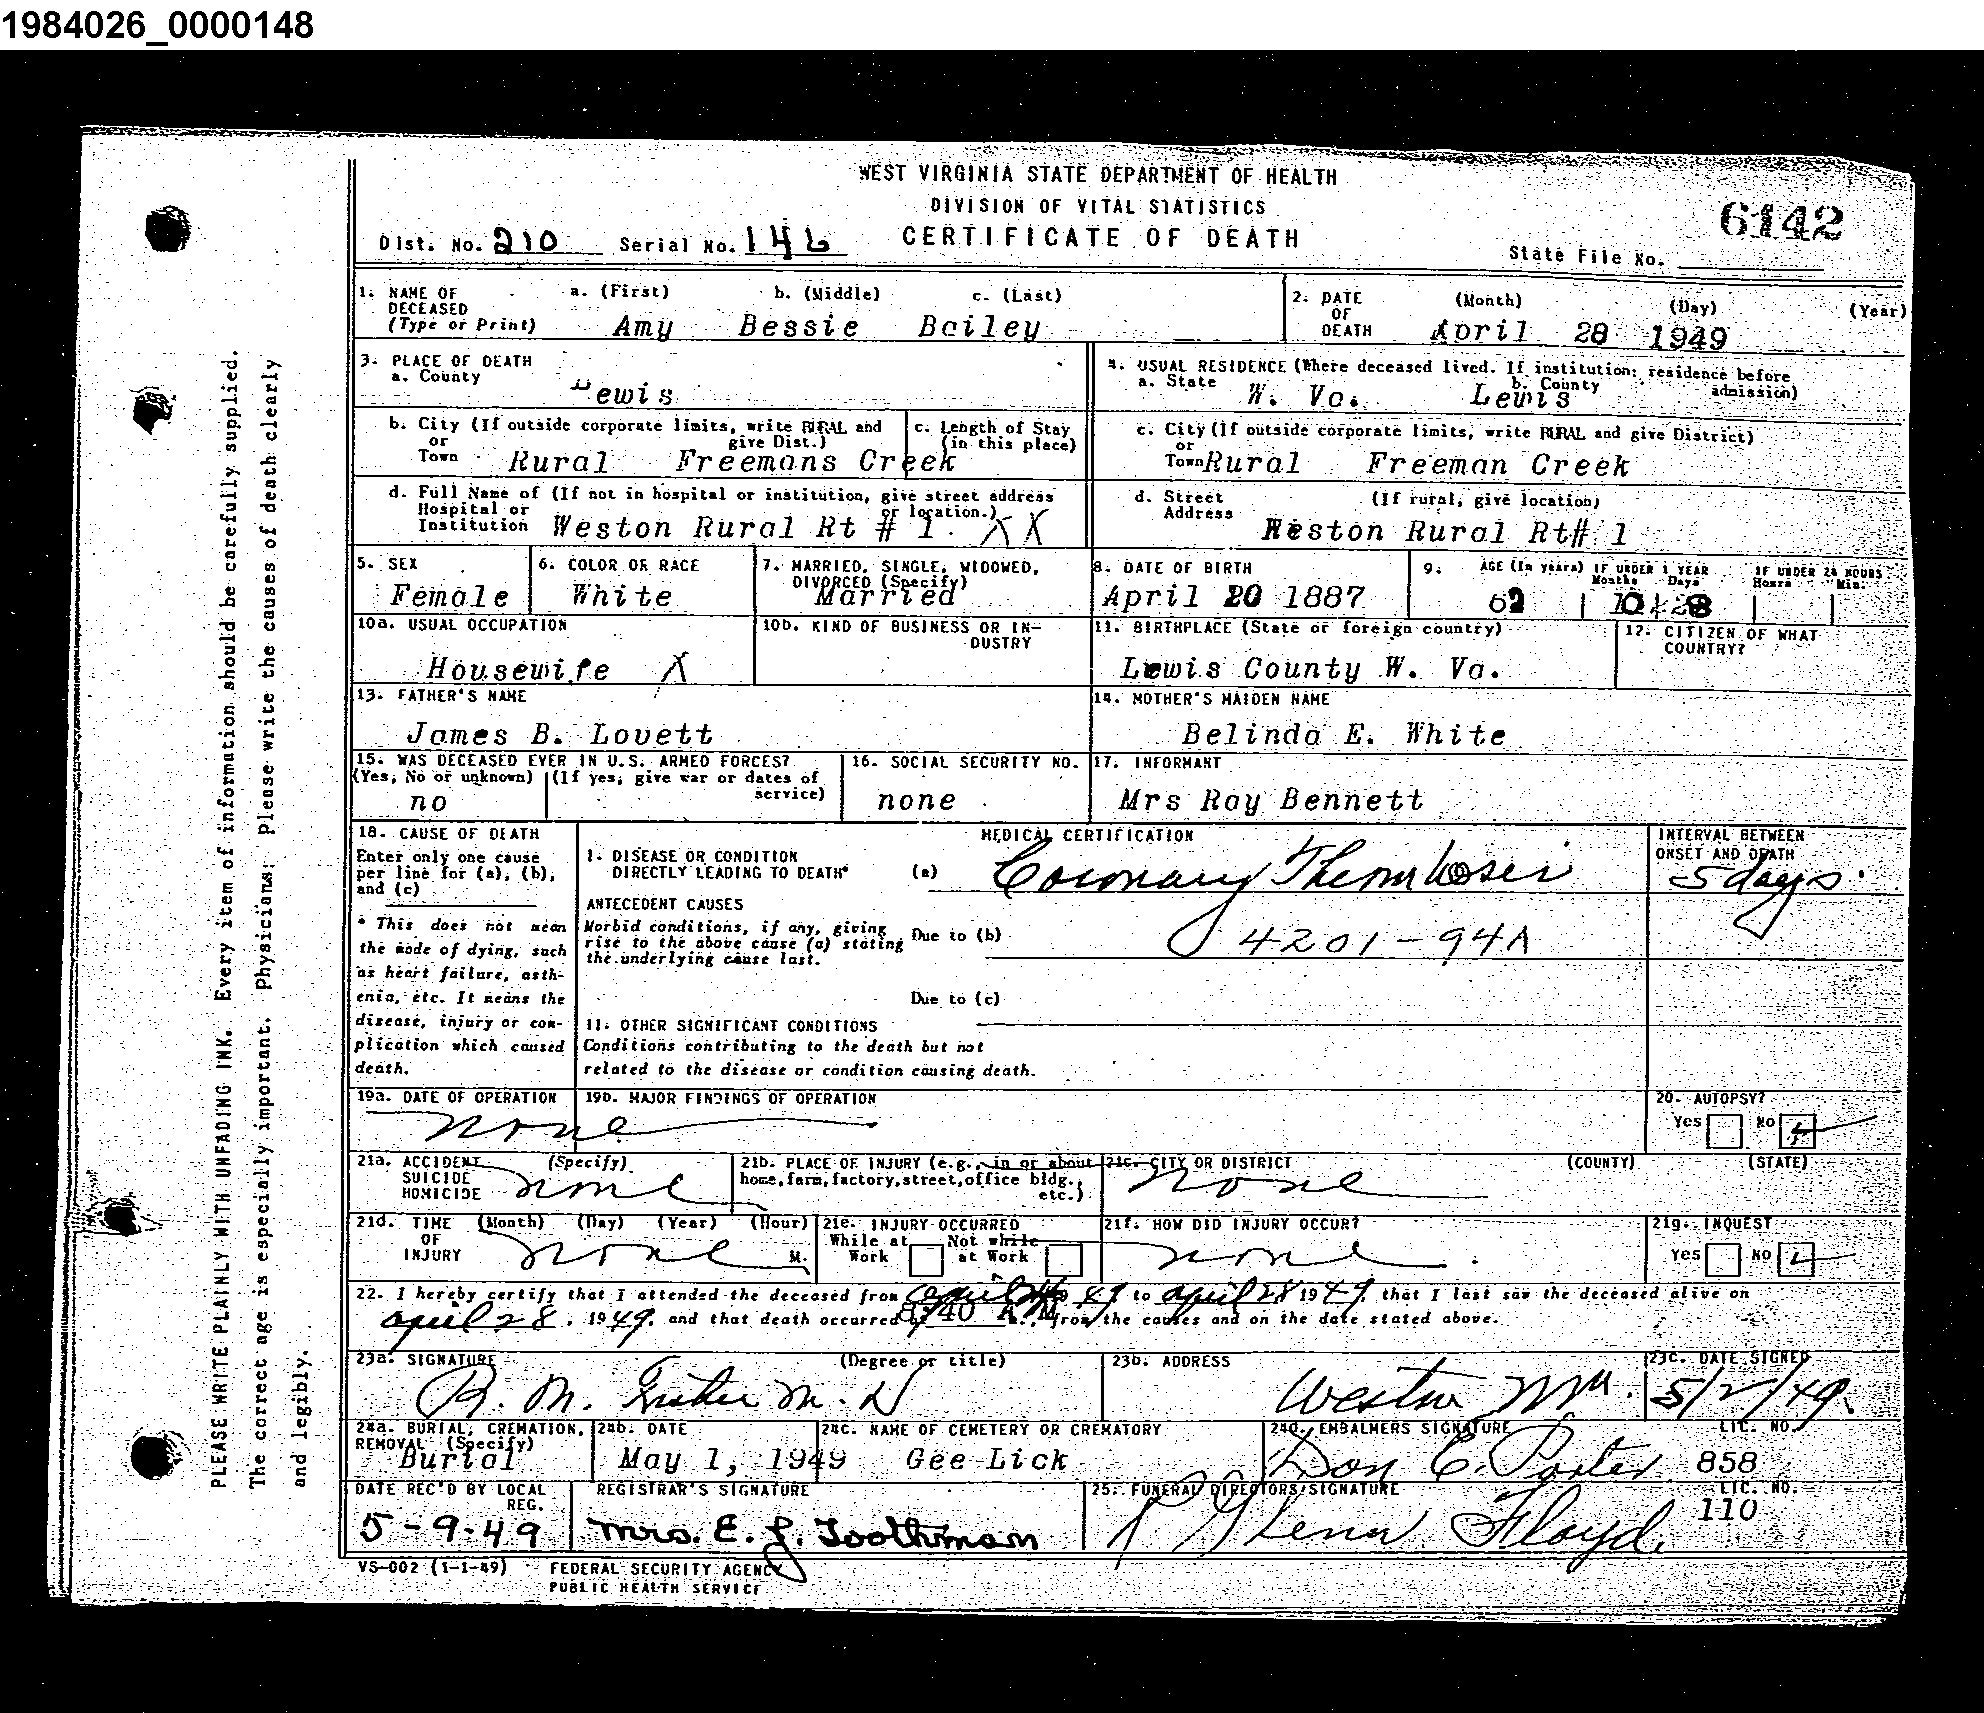 1984026_0000148
WEST VIRGINIA STATE DEPARTMENT OF HEALTH
DIVISION OF VITAL STATISTICS
CERTIFICATE OF DEATH
Dist. No. 210 Serial No. 146
6142
State File No.
1. NAME OF DECEASED (Type or Print) a. (First) b. (Middle) c. (Last)
Amy Bessie Bailey
2. DATE OF DEATH (Month) (Day) (Year)
April 28 1949
3. PLACE OF DEATH
a. County Lewis
4. USUAL RESIDENCE (Where deceased lived. If institution: residence before admission)
a. State W. Va. b. County Lewis
b. City (If outside corporate limits, write RURAL and give Dist.) or Town Rural Freemans Creek
c. Length of Stay (in this place)
c. City (If outside corporate limits, write RURAL and give District) or Town Rural Freeman Creek
d. Full Name of (If not in hospital or institution, give street address or location.) Hospital or Institution Weston Rural Rt # 1. XX
d. Street Address (If rural, give location)
Weston Rural Rt# 1
5. SEX Female
6. COLOR OR RACE White
7. MARRIED, SINGLE, WIDOWED, DIVORCED (Specify) Married
8. DATE OF BIRTH April 20 1887
9. AGE (In years) 62 IF UNDER 1 YEAR Months Days IF UNDER 24 HOURS Hours Min.
10a. USUAL OCCUPATION
Housewife X
10b. KIND OF BUSINESS OR INDUSTRY
11. BIRTHPLACE (State or foreign country)
Lewis County W. Va.
12. CITIZEN OF WHAT COUNTRY?
13. FATHER'S NAME
James B. Lovett
14. MOTHER'S MAIDEN NAME
Belinda E. White
15. WAS DECEASED EVER IN U.S. ARMED FORCES?
(Yes, No or unknown) (If yes, give war or dates of service)
no
16. SOCIAL SECURITY NO.
none
17. INFORMANT
Mrs Roy Bennett
18. CAUSE OF DEATH
Enter only one cause per line for (a), (b), and (c)
* This does not mean the mode of dying, such as heart failure, asthenia, etc. It means the disease, injury or complication which caused death.
MEDICAL CERTIFICATION
INTERVAL BETWEEN ONSET AND DEATH
I. DISEASE OR CONDITION DIRECTLY LEADING TO DEATH* (a) Coronary Thrombosis 5 days
ANTECEDENT CAUSES
Morbid conditions, if any, giving rise to the above cause (a) stating the underlying cause last.
Due to (b) 4201-94A
Due to (c)
11. OTHER SIGNIFICANT CONDITIONS
Conditions contributing to the death but not related to the disease or condition causing death.
19a. DATE OF OPERATION 19b. MAJOR FINDINGS OF OPERATION
none
20. AUTOPSY?
Yes No
21a. ACCIDENT SUICIDE HOMICIDE (Specify) none
21b. PLACE OF INJURY (e.g., in or about home, farm, factory, street, office bldg., etc.)
21c. CITY OR DISTRICT (COUNTY) (STATE)
none
21d. TIME OF INJURY (Month) (Day) (Year) (Hour) M.
none
21e. INJURY OCCURRED
While at Work Not while at Work
21f. HOW DID INJURY OCCUR?
none
21g. INQUEST
Yes No
22. I hereby certify that I attended the deceased from April 49 to April 28 1949, that I last saw the deceased alive on
April 28, 1949, and that death occurred 8:40 A.M. from the causes and on the date stated above.
23a. SIGNATURE (Degree or title)
R. M. Fisher M.D
23b. ADDRESS
Weston
23c. DATE SIGNED
5/2/49.
24a. BURIAL, CREMATION, REMOVAL (Specify)
Burial
24b. DATE
May 1, 1949
24c. NAME OF CEMETERY OR CREMATORY
Gee Lick
24d. EMBALMERS SIGNATURE LIC. NO.
Don C. Porter 858
DATE REC'D BY LOCAL REG.
5-9-49
REGISTRAR'S SIGNATURE
Mrs. E. J. Toothman
25. FUNERAL DIRECTORS SIGNATURE LIC. NO.
Glenn Floyd. 110
VS-002 (1-1-49) FEDERAL SECURITY AGENCY
PUBLIC HEALTH SERVICE
PLEASE WRITE PLAINLY WITH UNFADING INK. Every item of information should be carefully supplied.
The correct age is especially important. Physicians: please write the causes of death clearly
and legibly.